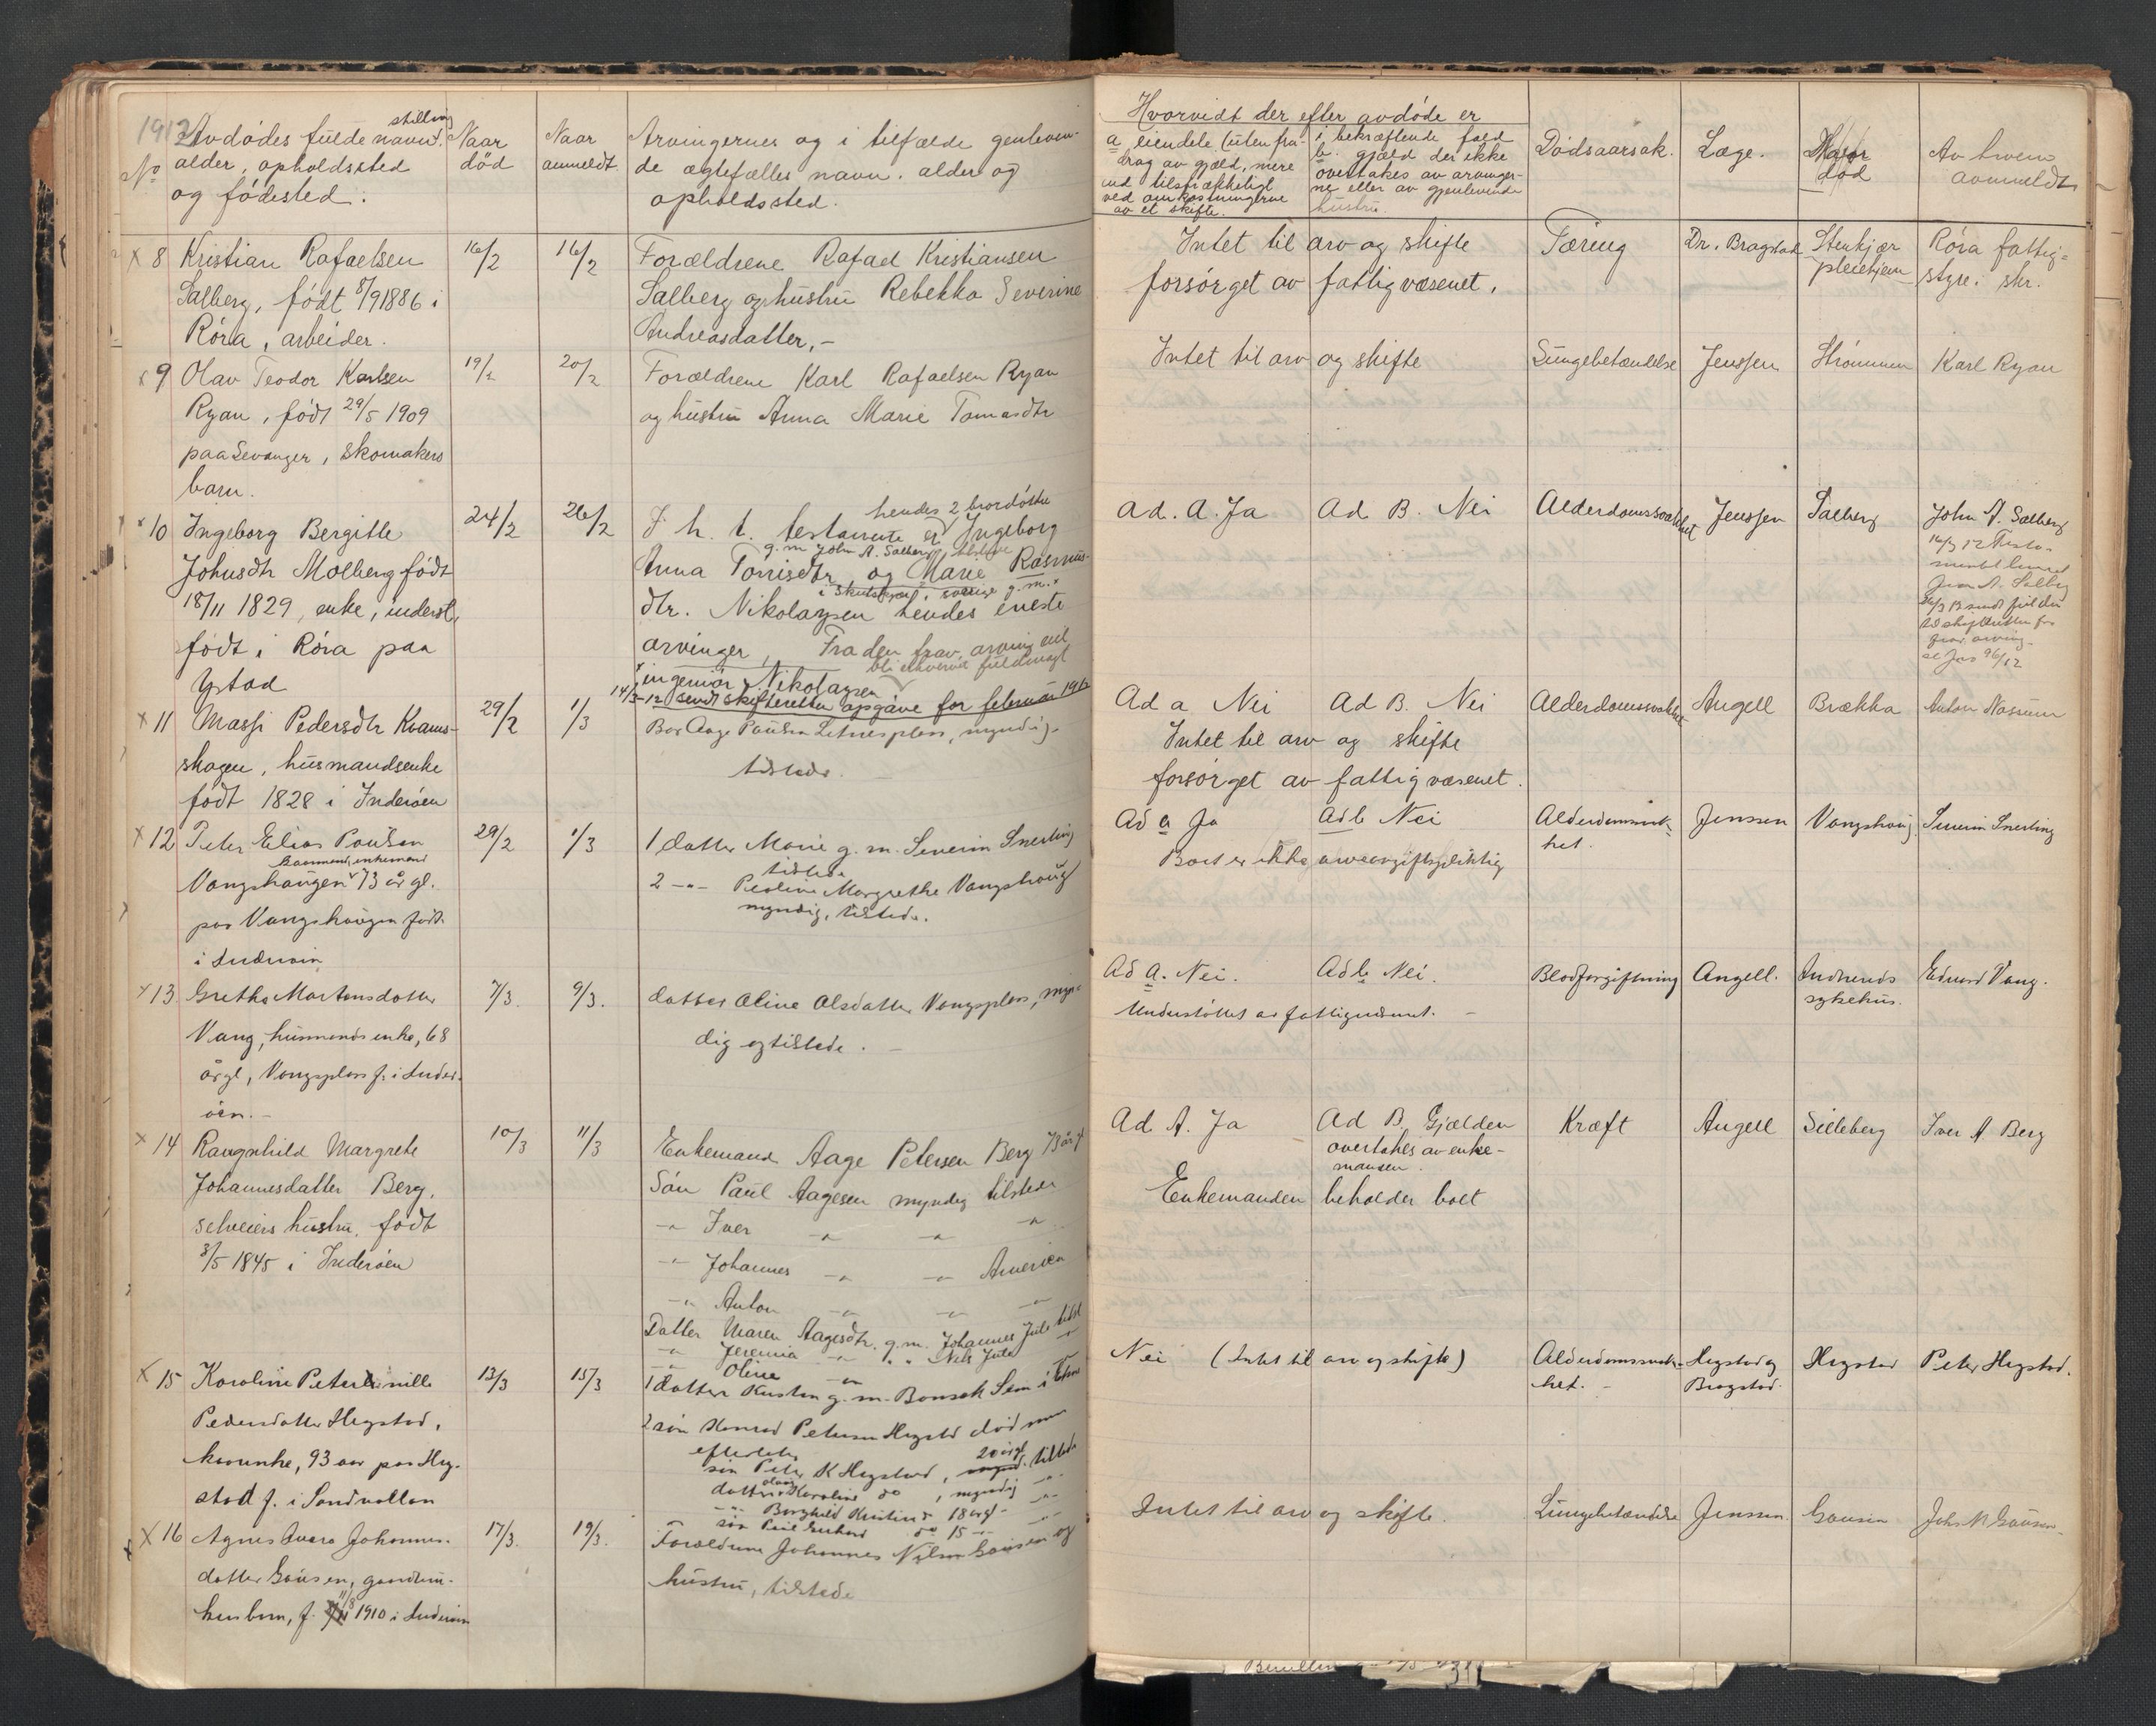 1912
No
Avdødes fulde navn, stilling
alder, opholdssted
og fødested.
Naar
død
Naar
anmeldt.
Arvingernes og i tilfælde genleven-
de ægtefælles navn, alder og
opholdssted.
Hvorvidt der efter avdøde er
a eiendele (uten fra-
drag av gjæld, mere
end tilstrækkeligt
ved omkostningerne
av et skifte.
i bekræftende fald
b. gjæld der ikke
overtakes av arvinger-
ne eller av gjenlevende
hustru.
Dødsaarsak.
Læge.
Hvor
død
Av hvem
anmeldt
x 8 Kristian Rafaelsen
Salberg, født 8/9 1886 i
Røra, arbeider.
16/2
16/2
Forældrene Rafael Kristiansen
Salberg og hustru Rebekka Severine
Andreasdatter, -
Intet til arv og skifte
forsørget av fattigvæsenet.
Tæring
Dr. Bragstad
Stenkjær
pleiehjem
Røra fattig-
styre i skr.
x 9 Olav Teodor Karlsen
Ryan, født 29/5 1909
paa Levanger, skomakers
barn.
19/2
20/2
Forældrene Karl Rafaelsen Ryan
og hustru Anna Marie Tomasdtr
Intet til arv og skifte
Lungebetændelse
Jenssen
Strømmen
Karl Ryan
x 10 Ingeborg Bergitte
Johnsdtr Molberg født
18/11 1829, enke, inderst,
født i Røra paa
Ystad
24/2
26/2
hendes 2 brordøttre
I h. t. testamente er Ingeborg
g. m. John A. Salberg, tilstede
Anna Tomisdtr, og Marie Rasmus-
i Skutskjær i Sverige g. m. x
dtr. Nikolaysen hendes eneste
arvinger, Fra den frav. arving vil
bli erhvervet fuldmagt
x ingeniør Nikolaysen
14/3-12 sendt skifteretten opgave for februar 1912
Ad. A. Ja
Ad B. Nei
Alderdomssvakhet
Jenssen
Salberg
John A. Salberg
x 11 Massi Pedersdtr Kvams-
skogen, husmandsenke
født 1828 i Inderøen
29/2
1/3
Bor Aage Paulsen Letnesplass, myndig.
tilstede.
Ad a Nei
Ad B. Nei
Intet til arv og skifte
forsørget av fattigvæsenet.
Alderdomssvakhet
Angell
Brækka
Anton Næssum
x 12 Peter Elias Paulsen
kaarmand, enkemand
Vangshaugen 73 år gl.
paa Vangshaugen født
i Inderøen
29/2
1/3
1 datter Marie g. m. Severin Snerting
tilstede
2 -"- Peoline Margrethe Vangshaug
myndig, tilstede.
Ad a Ja
Ad b Nei
Boet er ikke arveavgiftspliktig
Alderdomssvak-
het.
Jenssen
Vangshaug
Severin Snerting
x 13 Grethe Martensdatter
Vang, husmands enke, 68
år gl, Vangsplass f. i Inder-
øen. -
7/3.
9/3.
datter Oline Olsdatter Vangsplass, myn-
dig og tilstede. -
Ad a. Nei.
Ad b Nei.
Understøttet av fattigvæsenet. -
Blodforgiftning
Angell.
Indherreds
sykehus.
Edvard Vang.
x 14 Rangnhild Margrete
Johannesdatter Berg,
selveiers hustru, født
3/5 1845 i Inderøen
10/3
11/3
Enkemand Aage Petersen Berg 73 år gl
Søn Paul Aagesen myndig tilstede
-"- Iver -"- -"- -"-
-"- Johannes -"- -"- Amerika
-"- Anton -"- -"- -"-
Datter Maren Aagesdtr. g. m. Johannes Jule tilst
-"- Jeremia -"- " " Nels Jule "
-"- Oline -"-
Ad A. Ja
Ad B. Gjælden
overtakes av enke-
manden.
Enkemanden beholder boet
Kræft
Angell
Silleberg
Iver A Berg
x 15 Karoline Peternille
Pedersdatter Hegstad,
kaarenke, 93 aar paa Heg-
stad f. i Sandvollan
13/3
15/3
1 datter Kirsten g. m. Bonsak Sem i
2 søn Konrad Petersen Hegstad død men
efterlater
søn Peter K Hegstad, 20 årgl. tilstede
datter Karoline do, myndig -"-
-"- Borghild Kristine do 18 årgl -"-
søn Paul Gerhard do 15 -"- -"-
Nei (Intet til arv og skifte)
Alderdomssvak-
het. -
Hegstad og
Bragstad.
Hegstad
Peter Hegstad.
x 16 Agnes Johannes-
datter Gausen, gaardbru-
kers barn, f. 11/8 1910 i Inderøen
17/3.
19/3.
Forældrene Johannes Nilsen Gausen og
hustru, tilstede
Intet til arv og skifte.
Lungebetændelse
Jenssen.
Gausen
Johs N Gausen.